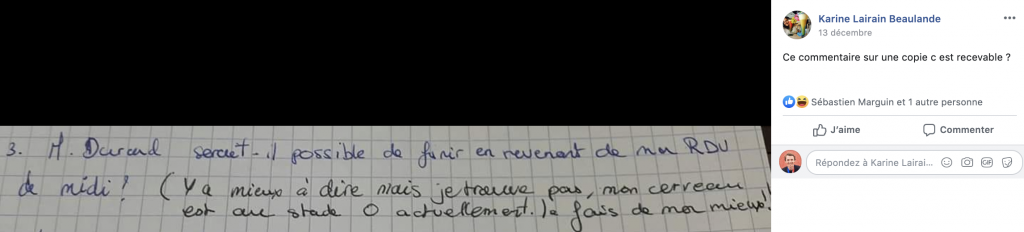 3. M. Durand serait-il possible de finir en revenant de mon RDV
de midi ? (Y a mieux à dire mais je trouve pas, mon cerveau
est au stade 0 actuellement. Je fais de mon mieux !
Karine Lairain Beaulande
13 décembre
Ce commentaire sur une copie c est recevable ?
Sébastien Marguin et 1 autre personne
J'aime
Commenter
Répondez à Karine Lairai...
GIF